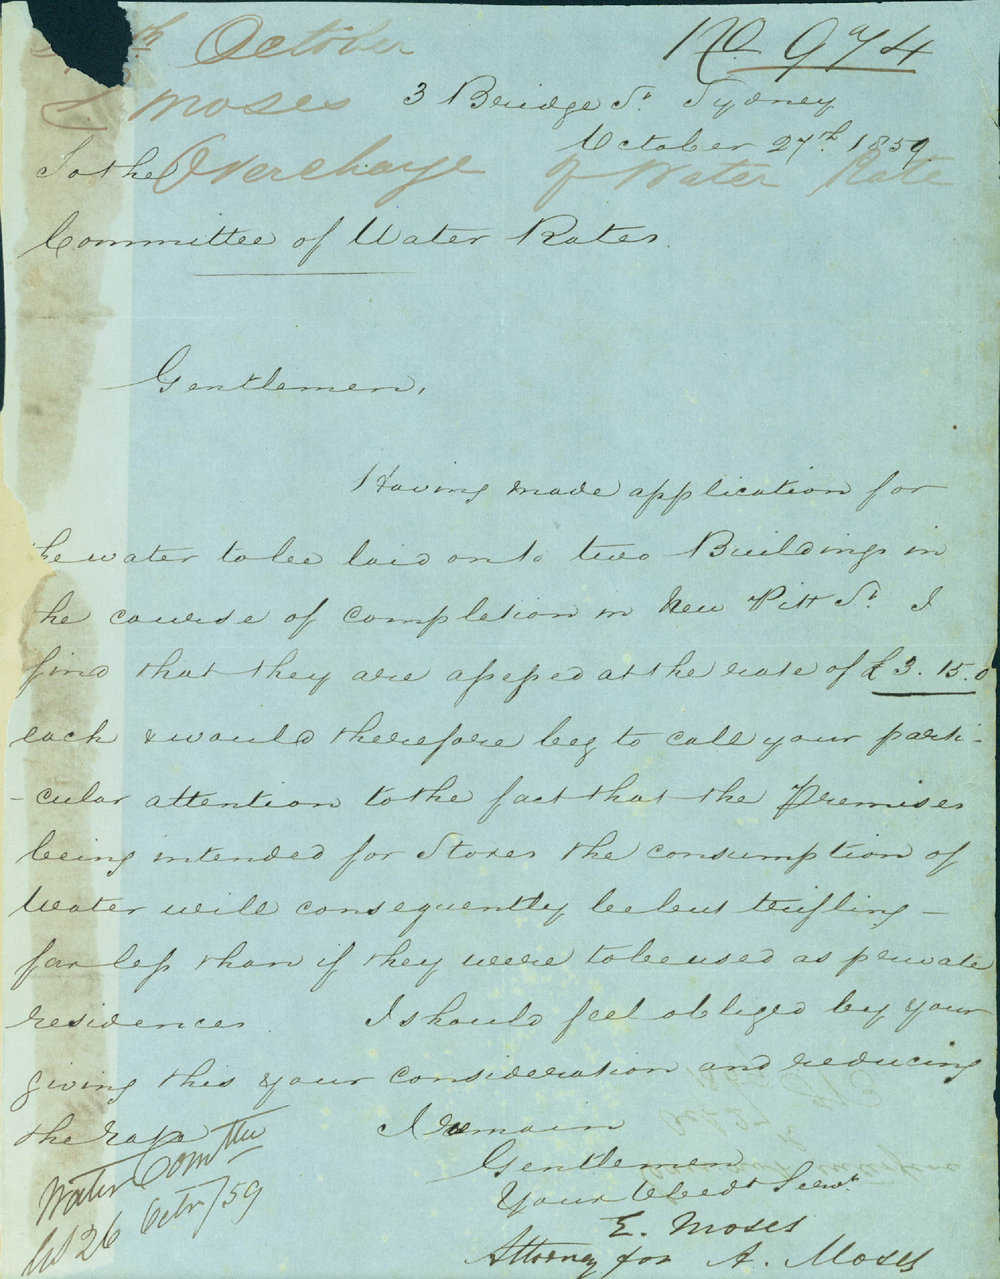 October
No 974
Moses
3 Bridge St. Sydney
October 27th 1859
To the
Overcharge of Water Rate
Committee of Water Rates.
Gentlemen,
Having made application for
the water to be laid on to two Buildings in
the course of completion in New Pitt St. I
find that they are assessed at the rate of £3.15.0
each & would therefore beg to call your parti-
-cular attention to the fact that the Premises
being intended for Stores the consumption of
Water will consequently be but trifling -
far less than if they were to be used as private
residences I should feel obliged by your
giving this your consideration and reducing
the rate I remain
Gentlemen
Your Obedt Servt
E. Moses
Attorney for A. Moses
Water Comttee
26 Octr/59